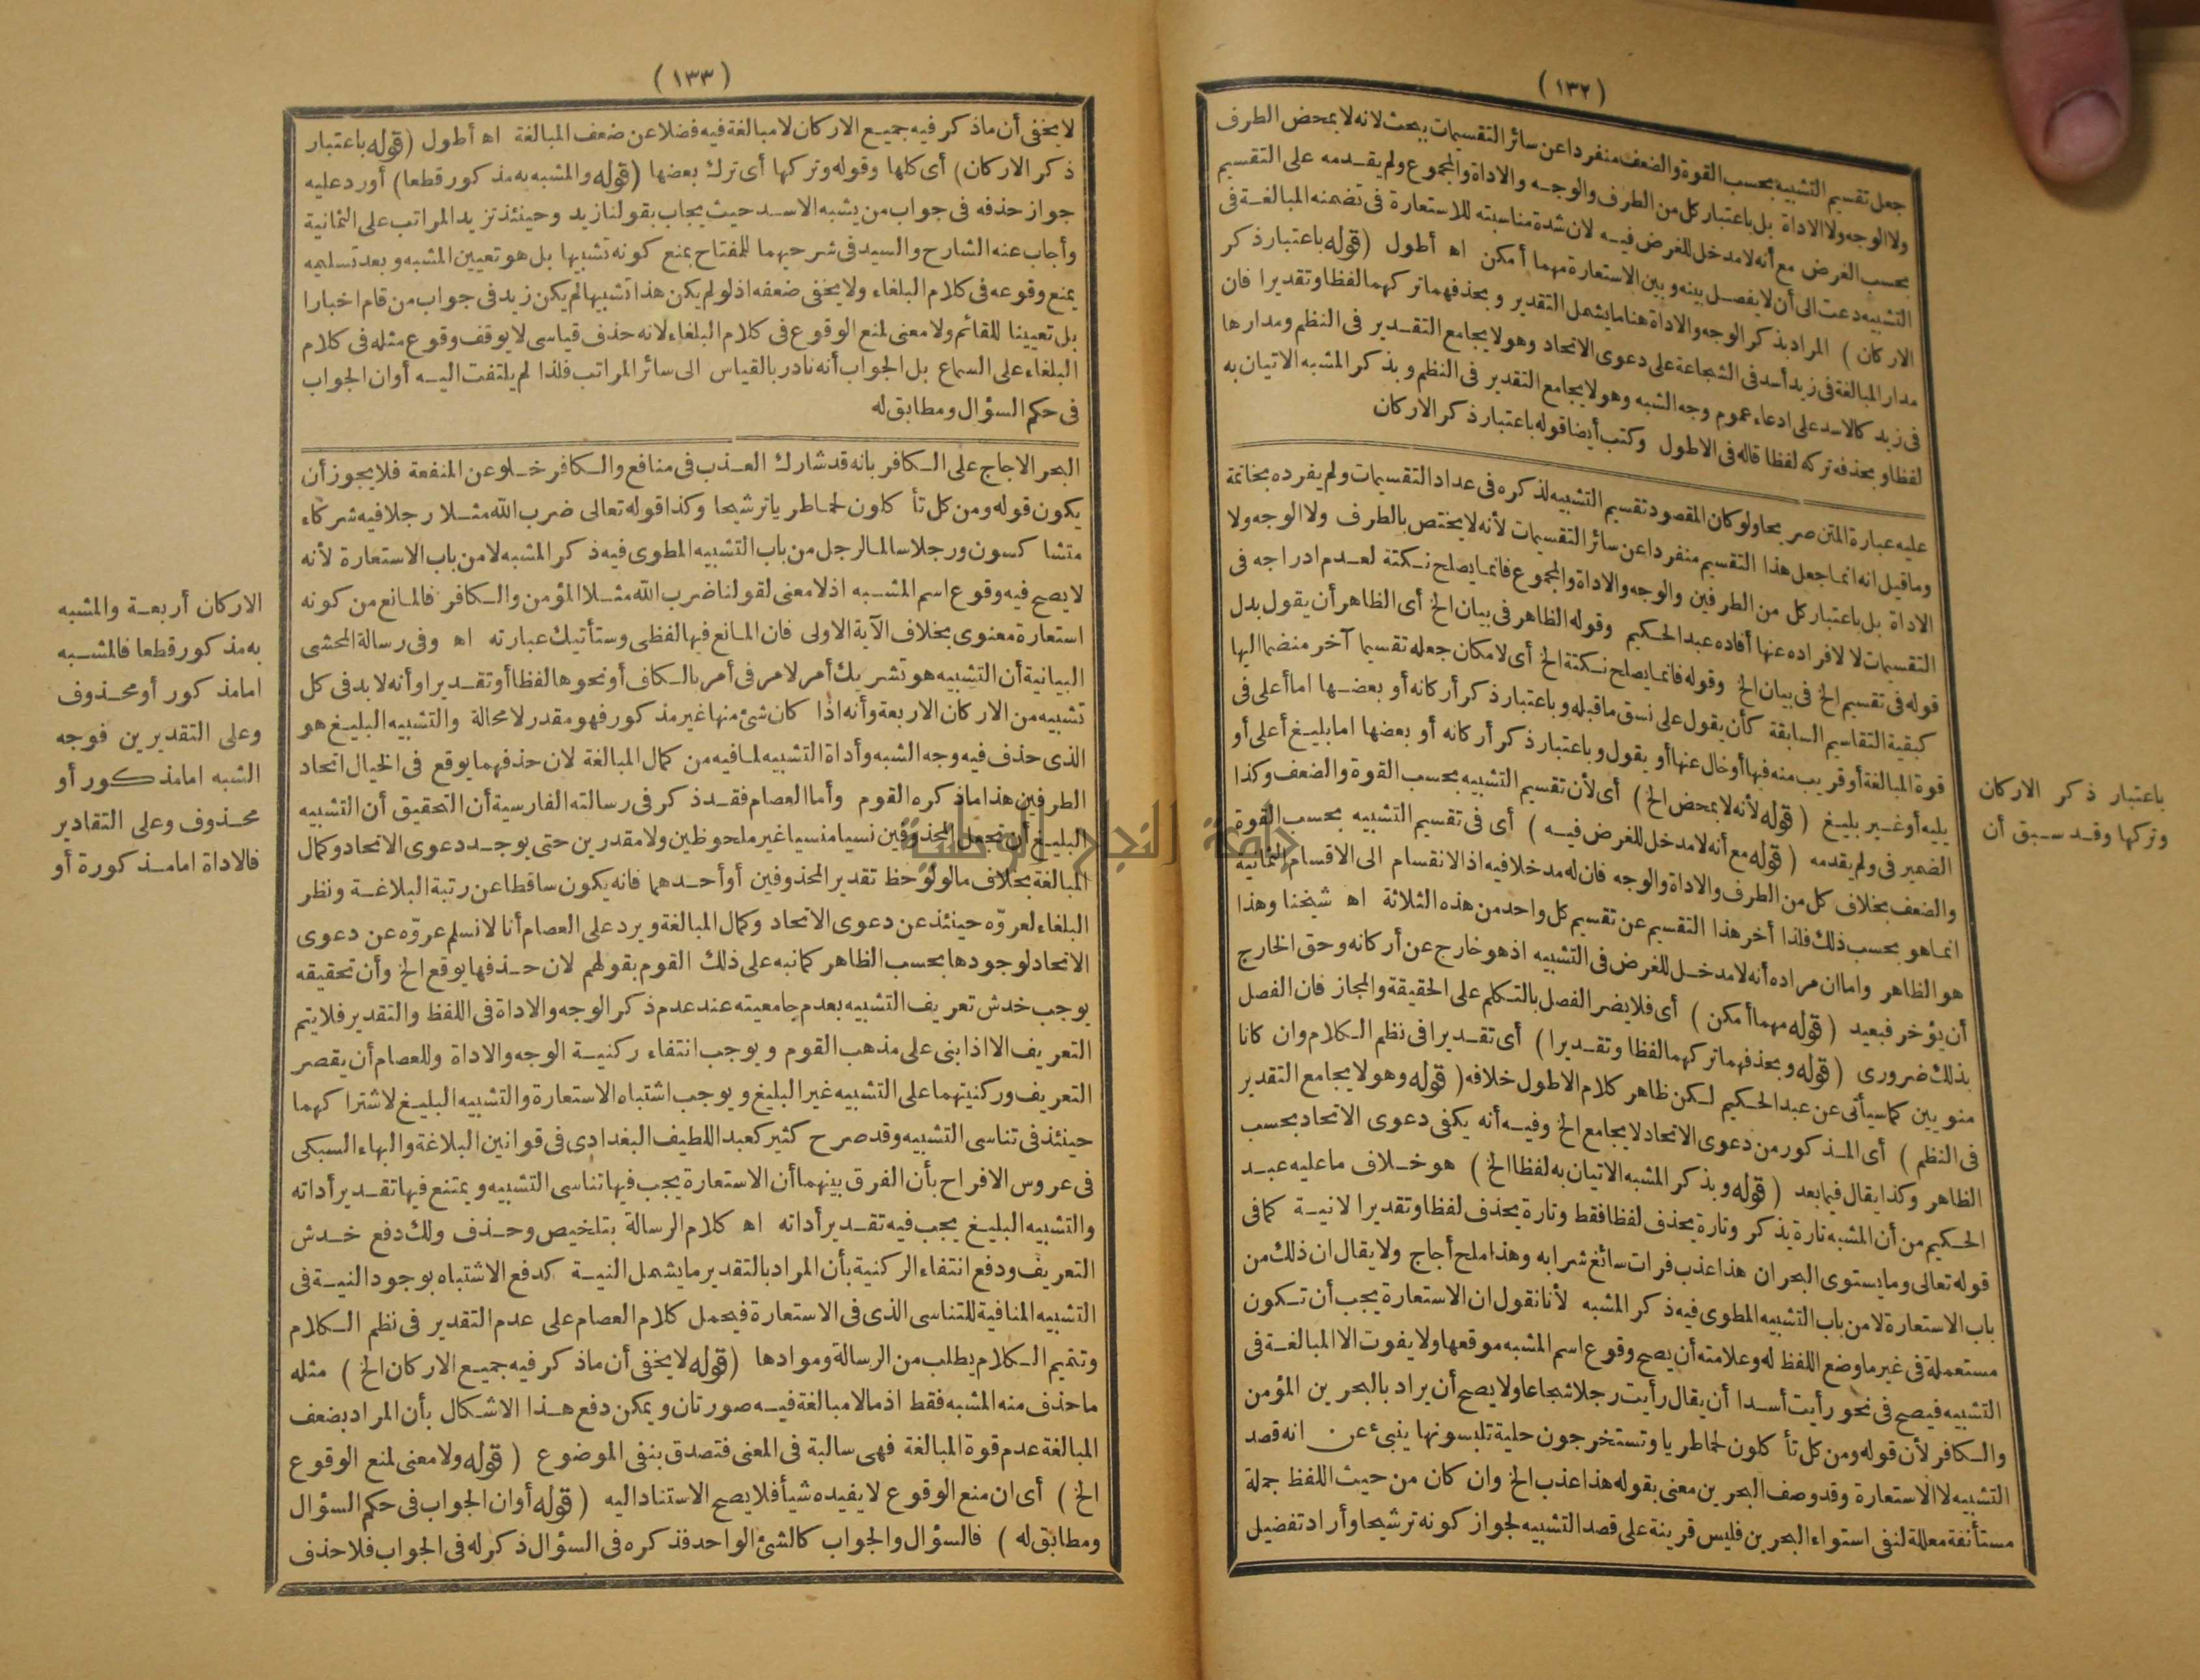 (١٣٢)
جعل تقسيم التشبيه بحسب القوة والضعف منفردا عن سائر التقسيمات بحث لانه لا بمحض الطرف
ولا الوجه ولا الاداة بل باعتبار كل من الطرف والوجه والاداة والمجموع ولم يقدمه على التقسيم
بحسب الغرض مع أنه لا مدخل للغرض فيه لان شدة مناسبته للاستعارة فى تضمنه المبالغة فى
التشبيه دعت الى أن لا يفصل بينه وبين الاستعارة مهما أمكن اه أطول (قوله باعتبار ذكر
الاركان) المراد بذكر الوجه والاداة هنا ما يشمل التقدير وبحذفهما تركهما لفظا وتقديرا فان
مدار المبالغة فى زيد أسد فى الشجاعة على دعوى الاتحاد وهو لا يجامع التقدير فى النظم ومدارها
فى زيد كالاسد على ادعاء عموم وجه الشبه وهو لا يجامع التقدير فى النظم وبذكر المشبه الاتيان به
لفظا وبحذفه تركه لفظا قاله فى الاطول وكتب أيضا قوله باعتبار ذكر الاركان
عليه عبارة المتن صريحا ولو كان المقصود تقسيم التشبيه لذكره فى عداد التقسيمات ولم يفرده بخاتمة
وما قيل انه انما جعل هذا التقسيم منفردا عن سائر التقسيمات لأنه لا يختص بالطرف ولا الوجه ولا
الاداة بل باعتبار كل من الطرفين والوجه والاداة والمجموع فانما يصلح نكتة لعدم ادراجه فى
التقسيمات لا لافراده عنها أفاده عبد الحكيم وقوله الظاهر فى بيان الخ أى الظاهر أن يقول بدل
قوله فى تقسيم الخ فى بيان الخ وقوله فانما يصلح نكتة الخ أى لامكان جعله تقسيما آخر منضما اليها
كبقية التقاسيم السابقة كأن يقول على نسق ما قبله وباعتبار ذكر أركانه أو بعضها اما أعلى فى
قوة المبالغة أو قريب منه فيها أو خال عنها أو يقول وباعتبار ذكر أركانه أو بعضها اما بليغ أعلى أو
يليه أو غير بليغ (قوله لأنه لا بمحض الخ) أى لأن تقسيم التشبيه بحسب القوة والضعف وكذا
الضمير فى ولم يقدمه (قوله مع أنه لا مدخل للغرض فيه) أى فى تقسيم التشبيه بحسب القوة
والضعف بخلاف كل من الطرف والاداة والوجه فان له مدخلا فيه اذ الانقسام الى الاقسام الثمانية
انما هو بحسب ذلك فلذا أخر هذا التقسيم عن تقسيم كل واحد من هذه الثلاثة اه شيخنا وهذا
هو الظاهر واما ان مراده أنه لا مدخل للغرض فى التشبيه اذ هو خارج عن أركانه وحق الخارج
أن يؤخر فبعيد (قوله مهما أمكن) أى فلا يضر الفصل بالتكلم على الحقيقة والمجاز فان الفصل
بذلك ضرورى (قوله وبحذفهما تركهما لفظا وتقديرا) أى تقديرا فى نظم الكلام وان كانا
منويين كما سيأتى عن عبد الحكيم لكن ظاهر كلام الاطول خلافه (قوله وهو لا يجامع التقدير
فى النظم) أى المذكور من دعوى الاتحاد لا يجامع الخ وفيه أنه يكفى دعوى الاتحاد بحسب
الظاهر وكذا يقال فيما بعد (قوله وبذكر المشبه الاتيان به لفظا الخ) هو خلاف ما عليه عبد
الحكيم من أن المشبه تارة يذكر وتارة يحذف لفظا فقط وتارة يحذف لفظا وتقديرا لا نية كما فى
قوله تعالى وما يستوى البحران هذا عذب فرات سائغ شرابه وهذا ملح أجاج ولا يقال ان ذلك من
باب الاستعارة لا من باب التشبيه المطوى فيه ذكر المشبه لأنا نقول ان الاستعارة يجب أن تكون
مستعملة فى غير ما وضع اللفظ له وعلامته أن يصح وقوع اسم المشبه موقعها ولا يفوت الا المبالغة فى
التشبيه فيصح فى نحو رأيت أسدا أن يقال رأيت رجلا شجاعا ولا يصح أن يراد بالبحرين المؤمن
والكافر لأن قوله ومن كل تأكلون لحما طريا وتستخرجون حلية تلبسونها ينبئ عن انه قصد
التشبيه لا الاستعارة وقد وصف البحرين معنى بقوله هذا عذب الخ وان كان من حيث اللفظ جملة
مستأنفة معللة لنفى استواء البحرين فليس قرينة على قصد التشبيه لجواز كونه ترشيحا وأراد تفضيل
باعتبار ذكر الاركان
وتركها وقد سبق أن
(١٣٣)
لا يخفى أن ما ذكر فيه جميع الاركان لا مبالغة فيه فضلا عن ضعف المبالغة اه أطول (قوله باعتبار
ذكر الاركان) أى كلها وقوله وتركها أى ترك بعضها (قوله والمشبه به مذكور قطعا) أورد عليه
جواز حذفه فى جواب من يشبه الاسد حيث يجاب بقولنا زيد وحينئذ تزيد المراتب على الثمانية
وأجاب عنه الشارح والسيد فى شرحيهما للمفتاح بمنع كونه تشبيها بل هو تعيين المشبه وبعد تسليمه
يمنع وقوعه فى كلام البلغاء ولا يخفى ضعفه اذ لو لم يكن هذا تشبيها لم يكن زيد فى جواب من قام اخبارا
بل تعيينا للقائم ولا معنى لمنع الوقوع فى كلام البلغاء لانه حذف قياسى لا يوقف وقوع مثله فى كلام
البلغاء على السماع بل الجواب أنه نادر بالقياس الى سائر المراتب فلذا لم يلتفت اليه أوان الجواب
فى حكم السؤال ومطابق له
البحر الاجاج على الكافر بانه قد شارك العذب فى منافع والكافر خلو عن المنفعة فلا يجوز أن
يكون قوله ومن كل تأكلون لحما طريا ترشيحا وكذا قوله تعالى ضرب الله مثلا رجلا فيه شركاء
متشاكسون ورجلا سالما لرجل من باب التشبيه المطوى فيه ذكر المشبه لا من باب الاستعارة لأنه
لا يصح فيه وقوع اسم المشبه اذ لا معنى لقولنا ضرب الله مثلا المؤمن والكافر فالمانع من كونه
استعارة معنوى بخلاف الآية الاولى فان المانع فيها لفظى وستأتيك عبارته اه وفى رسالة المحشى
البيانية أن التشبيه هو تشريك أمر لامر فى أمر بالكاف أو نحوها لفظا أو تقديرا وأنه لا بد فى كل
تشبيه من الاركان الاربعة وأنه اذا كان شئ منها غير مذكور فهو مقدر لا محالة والتشبيه البليغ هو
الذى حذف فيه وجه الشبه وأداة التشبيه لما فيه من كمال المبالغة لان حذفهما يوقع فى الخيال اتحاد
الطرفين هذا ما ذكره القوم وأما العصام فقد ذكر فى رسالته الفارسية أن التحقيق أن التشبيه
البليغ أن تجعل المحذوفين نسيا منسيا غير ملحوظين ولا مقدرين حتى يوجد دعوى الاتحاد وكمال
المبالغة بخلاف ما لو لوحظ تقدير المحذوفين أو أحدهما فانه يكون ساقطا عن رتبة البلاغة ونظر
البلغاء لعروّه حينئذ عن دعوى الاتحاد وكمال المبالغة ويرد على العصام أنا لا نسلم عروّه عن دعوى
الاتحاد لوجودها بحسب الظاهر كما نبه على ذلك القوم بقولهم لان حذفها يوقع الخ وأن تحقيقه
يوجب خدش تعريف التشبيه بعدم جامعيته عند عدم ذكر الوجه والاداة فى اللفظ والتقدير فلا يتم
التعريف الا اذا بنى على مذهب القوم ويوجب انتفاء ركنية الوجه والاداة وللعصام أن يقصر
التعريف وركنيتهما على التشبيه غير البليغ ويوجب اشتباه الاستعارة والتشبيه البليغ لاشتراكهما
حينئذ فى تناسى التشبيه وقد صرح كثير كعبد اللطيف البغدادى فى قوانين البلاغة والبهاء السبكى
فى عروس الافراح بأن الفرق بينهما أن الاستعارة يجب فيها تناسى التشبيه ويمتنع فيها تقدير أداته
والتشبيه البليغ يجب فيه تقدير أداته اه كلام الرسالة بتلخيص وحذف ولك دفع خدش
التعريف ودفع انتفاء الركنية بأن المراد بالتقدير ما يشمل النية كدفع الاشتباه بوجود النية فى
التشبيه المنافية للتناسى الذى فى الاستعارة فيحمل كلام العصام على عدم التقدير فى نظم الكلام
وتتميم الكلام يطلب من الرسالة وموادها (قوله لا يخفى أن ما ذكر فيه جميع الاركان الخ) مثله
ما حذف منه المشبه فقط اذ ما لا مبالغة فيه صورتان ويمكن دفع هذا الاشكال بأن المراد بضعف
المبالغة عدم قوة المبالغة فهى سالبة فى المعنى فتصدق بنفى الموضوع (قوله ولا معنى لمنع الوقوع
الخ) أى ان منع الوقوع لا يفيده شيأ فلا يصح الاستناد اليه (قوله أوان الجواب فى حكم السؤال
ومطابق له) فالسؤال والجواب كالشئ الواحد فذكره فى السؤال ذكر له فى الجواب فلا حذف
الاركان أربعة والمشبه
به مذكور قطعا فالمشبه
اما مذكور أو محذوف
وعلى التقديرين فوجه
الشبه اما مذكور أو
محذوف وعلى التقادير
فالاداة اما مذكورة أو
جامعة النجاح الوطنية